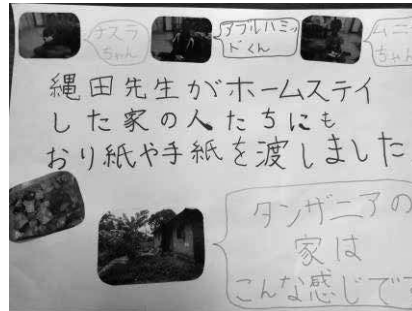 ナスラ
ちゃん
アブルハミッ
ドくん
ムニ
ちゃん
縄田先生がホームステイ
した家の人たちにも
おり紙や手紙を渡しました
タンザニアの
家は
こんな感じで